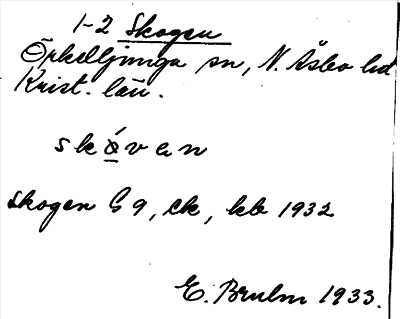 1-2 Skogen
Örkelljunga sn, N. Åsbo hd
Krist. län.
skǿvan
Skogen G 9, ek, kb 1932
E. Bruhn 1933.